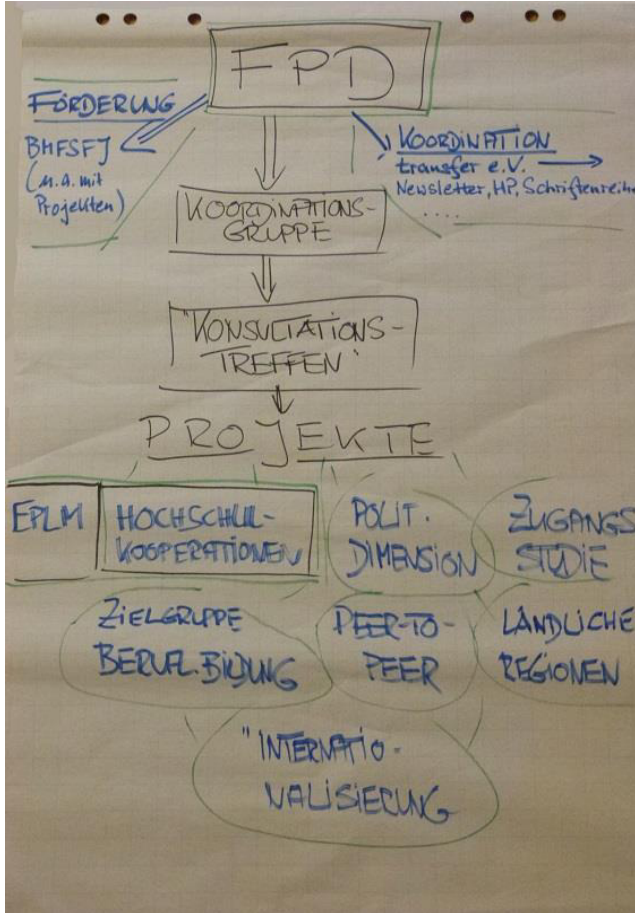 FPD
FÖRDERUNG
BMFSFJ
(u.a. mit
Projekten)
KOORDINATION
transfer e.V.
Newsletter, HP, Schriftenreihe
....
KOORDINATIONS-
GRUPPE
"KONSULTATIONS-
TREFFEN"
PROJEKTE
EPLM
HOCHSCHUL-
KOOPERATIONEN
POLIT.
DIMENSION
ZUGANGS
STUDIE
ZIELGRUPPE
BERUFL. BILDUNG
PEER-TO-
PEER
LÄNDLICHE
REGIONEN
"INTERNATIO-
NALISIERUNG